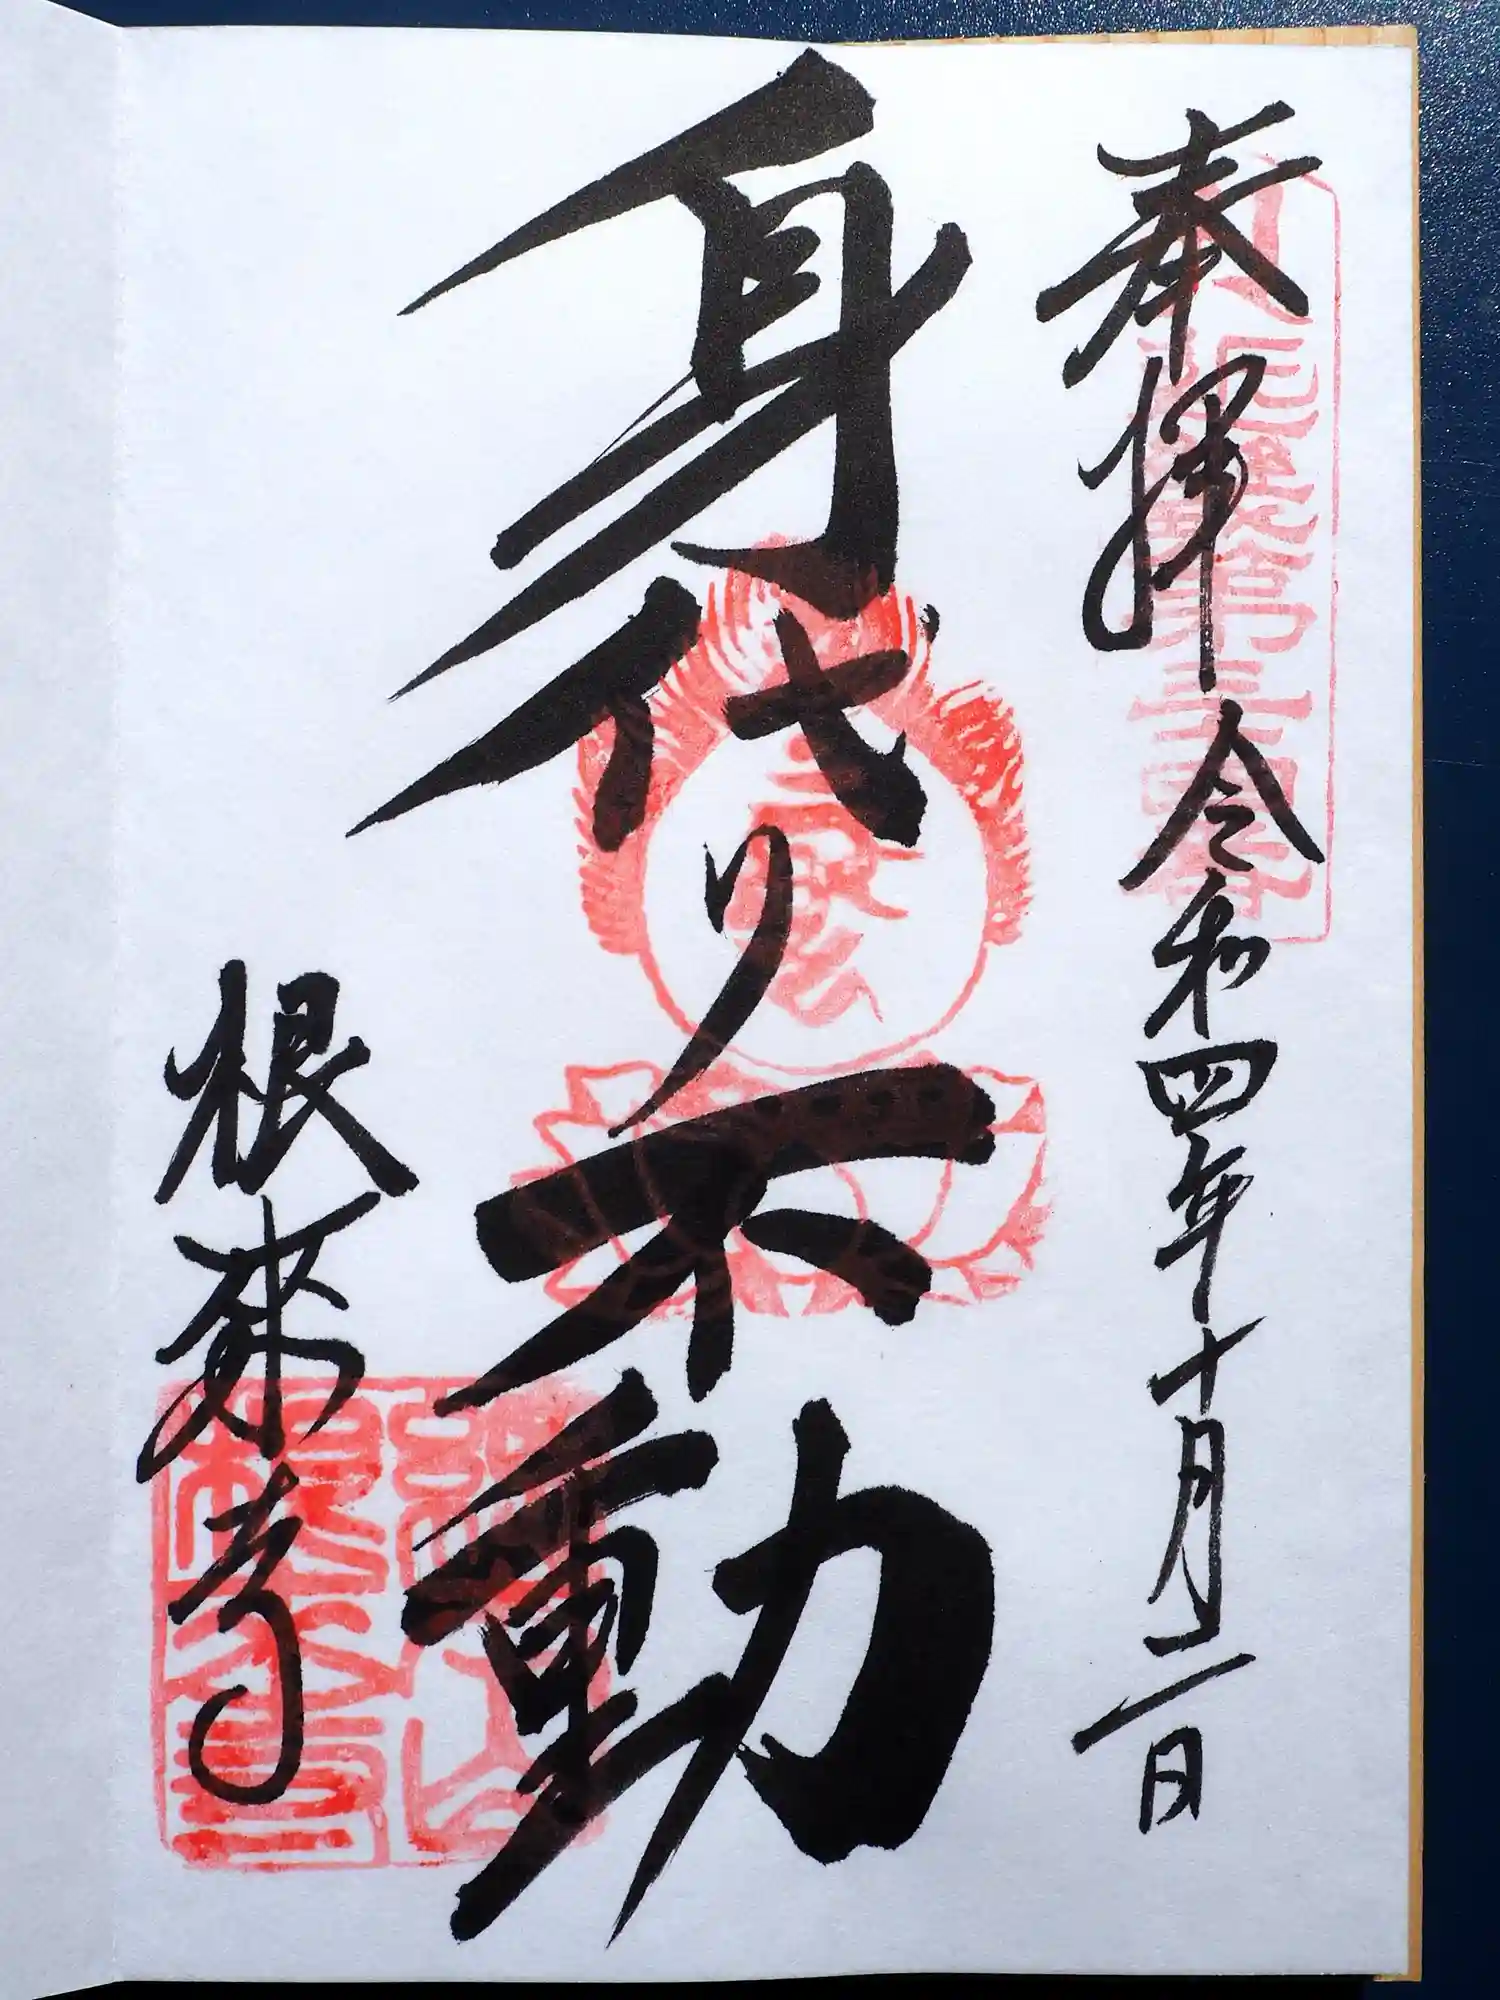 奉拝 令和四年十月二日
身代り不動
根來寺